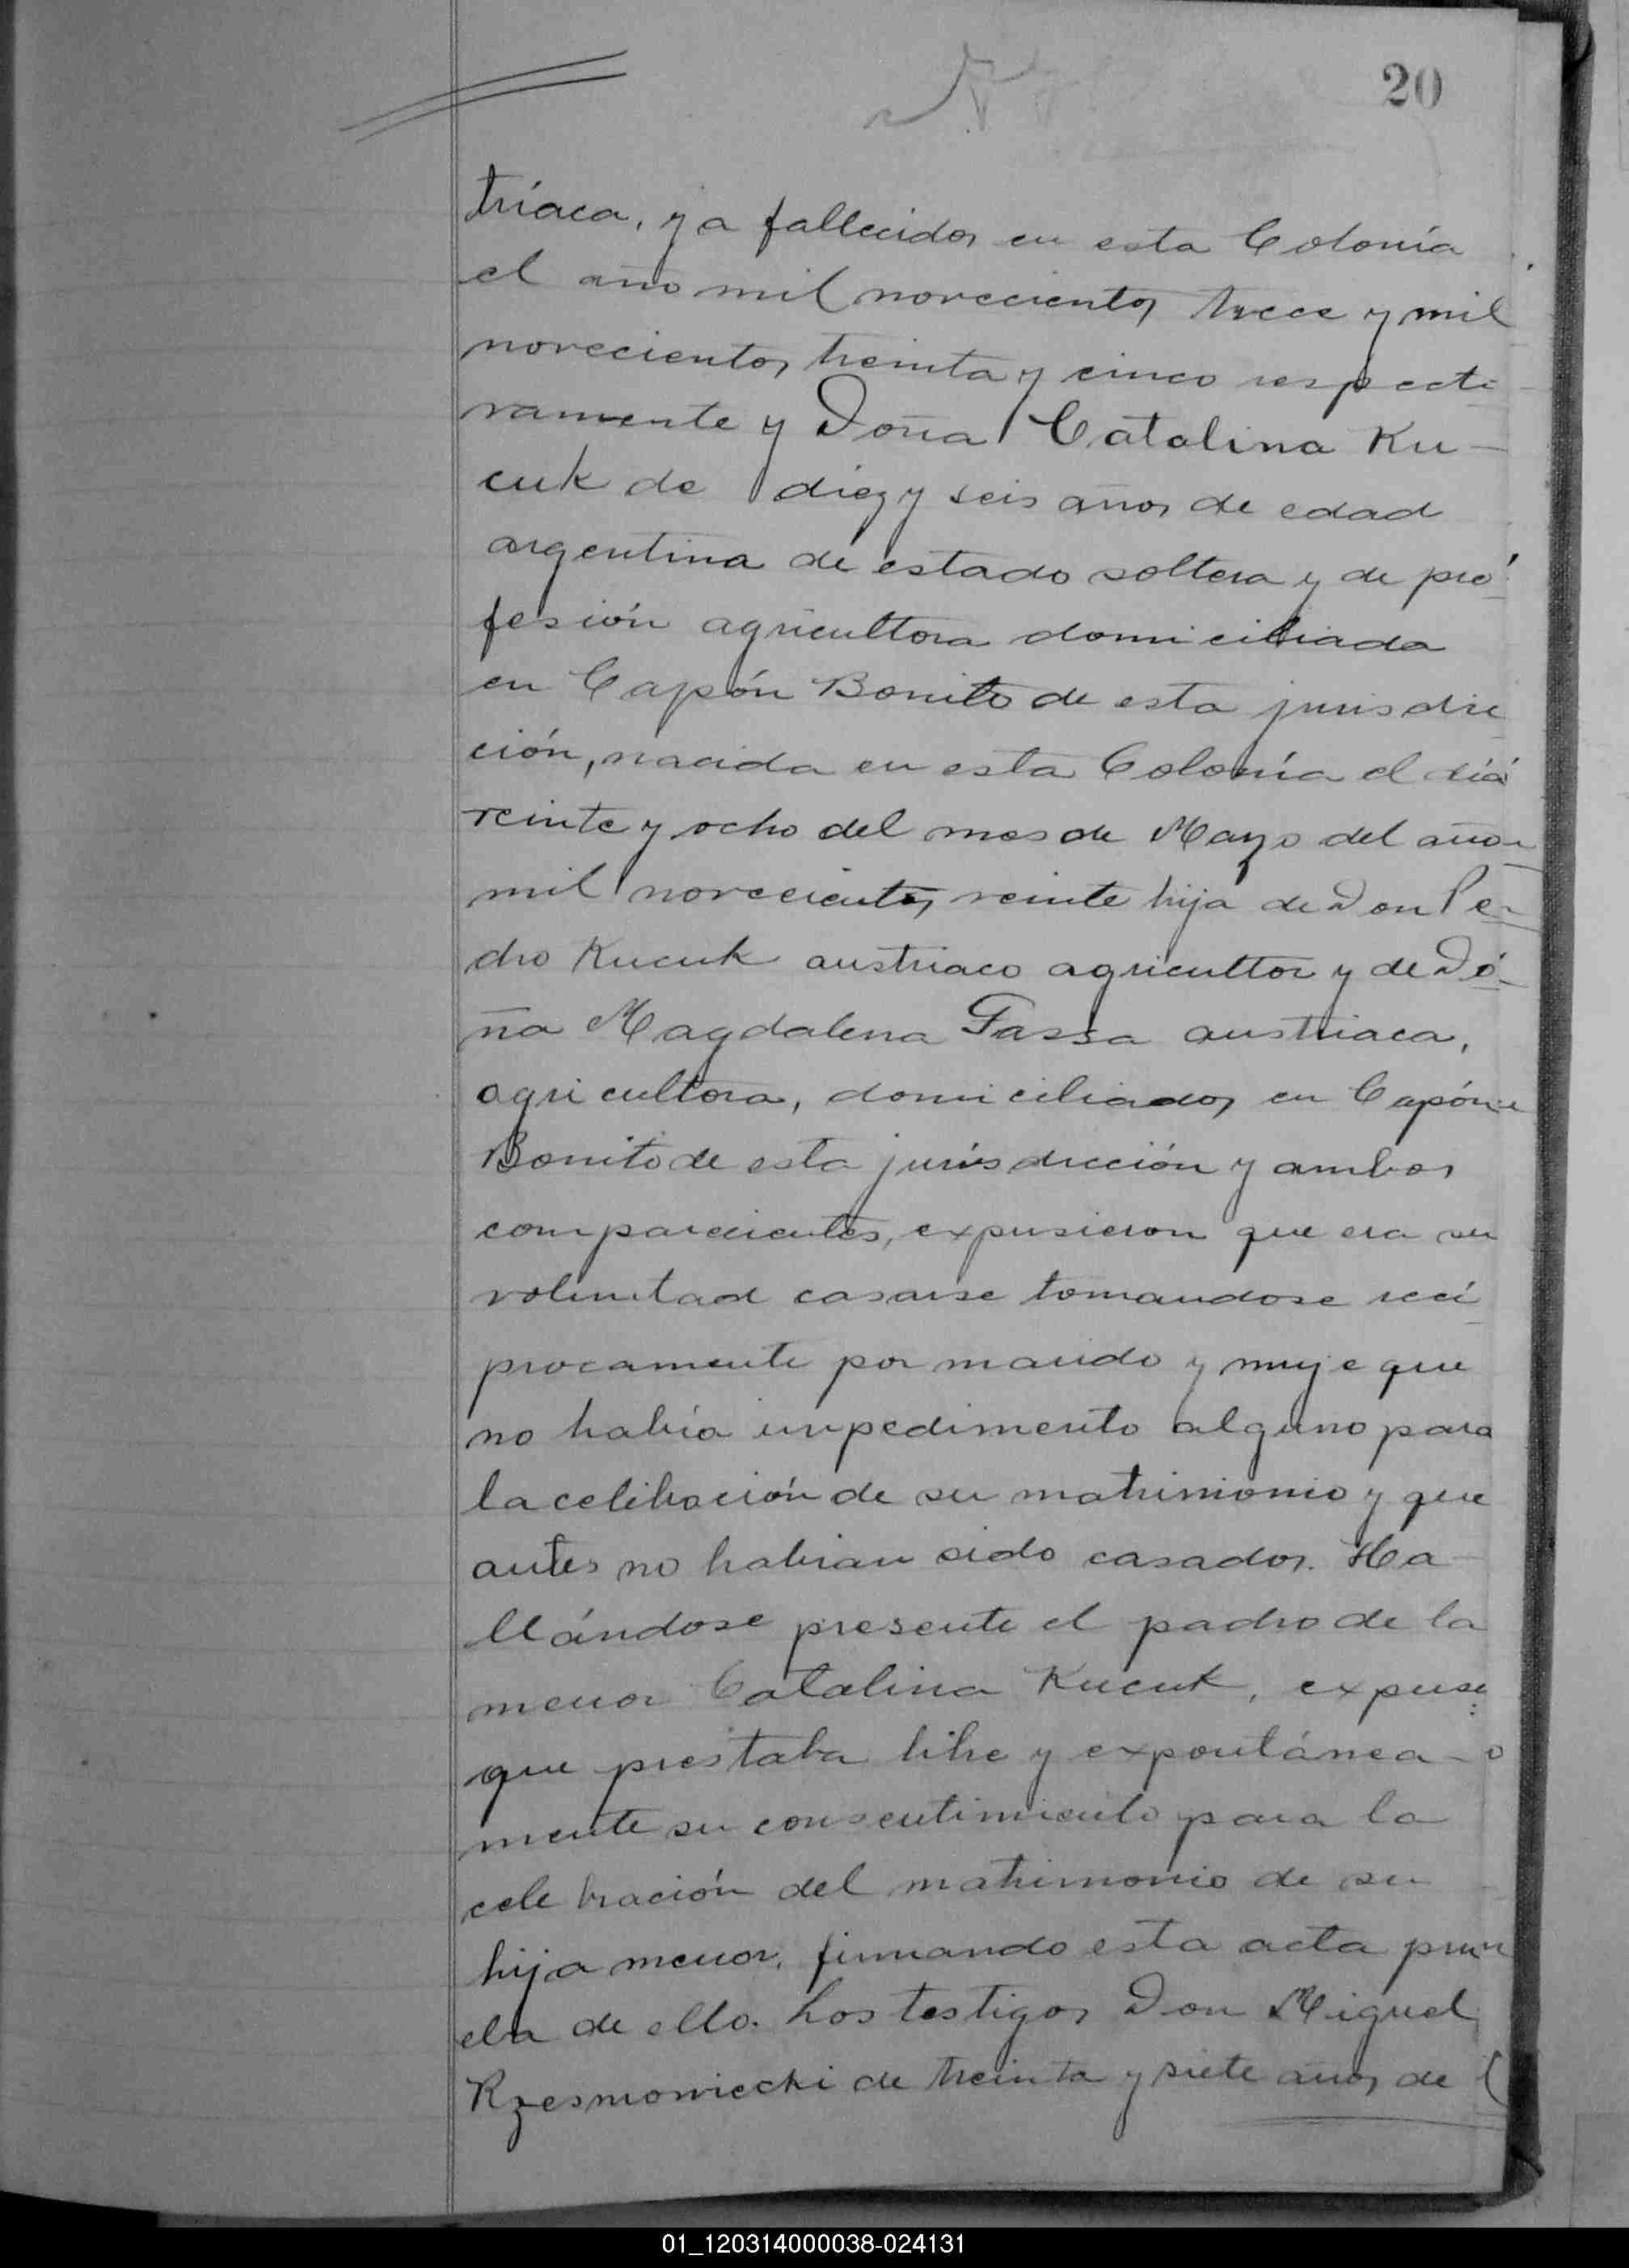 20
tríaca, ya fallecidos en esta Colonia
el año mil novecientos trece y mil
novecientos treinta y cinco respecti-
vamente y Doña Catalina Ku-
cuk de diez y seis años de edad
argentina de estado soltera y de pro-
fesión agricultora domiciliada
en Capón Bonito de esta jurisdic
ción, nacida en esta Colonia el día
veinte y ocho del mes de Mayo del año
mil novecientos veinte hija de Don Pe-
dro Kucuk austriaco agricultor y de Do-
ña Magdalena Fassa austriaca,
agricultora, domiciliados en Capón
Bonito de esta jurisdicción y ambos
comparecientes, expusieron que era su
voluntad casarse tomandose recí
procamente por marido y muje que
no había impedimento alguno para
la celibración de su matrimonio y que
antes no habian sido casados. Ha-
llándose presente el padre de la
menor Catalina Kucuk, expuso
que prestaba libre y expontánea-
mente su consentimiento para la
celebración del matrimonio de su
hija menor, firmando esta acta pru
eba de ello. Los testigos Don Miguel
Rzesmowiecki de treinta y siete años de
01_120314000038-024131